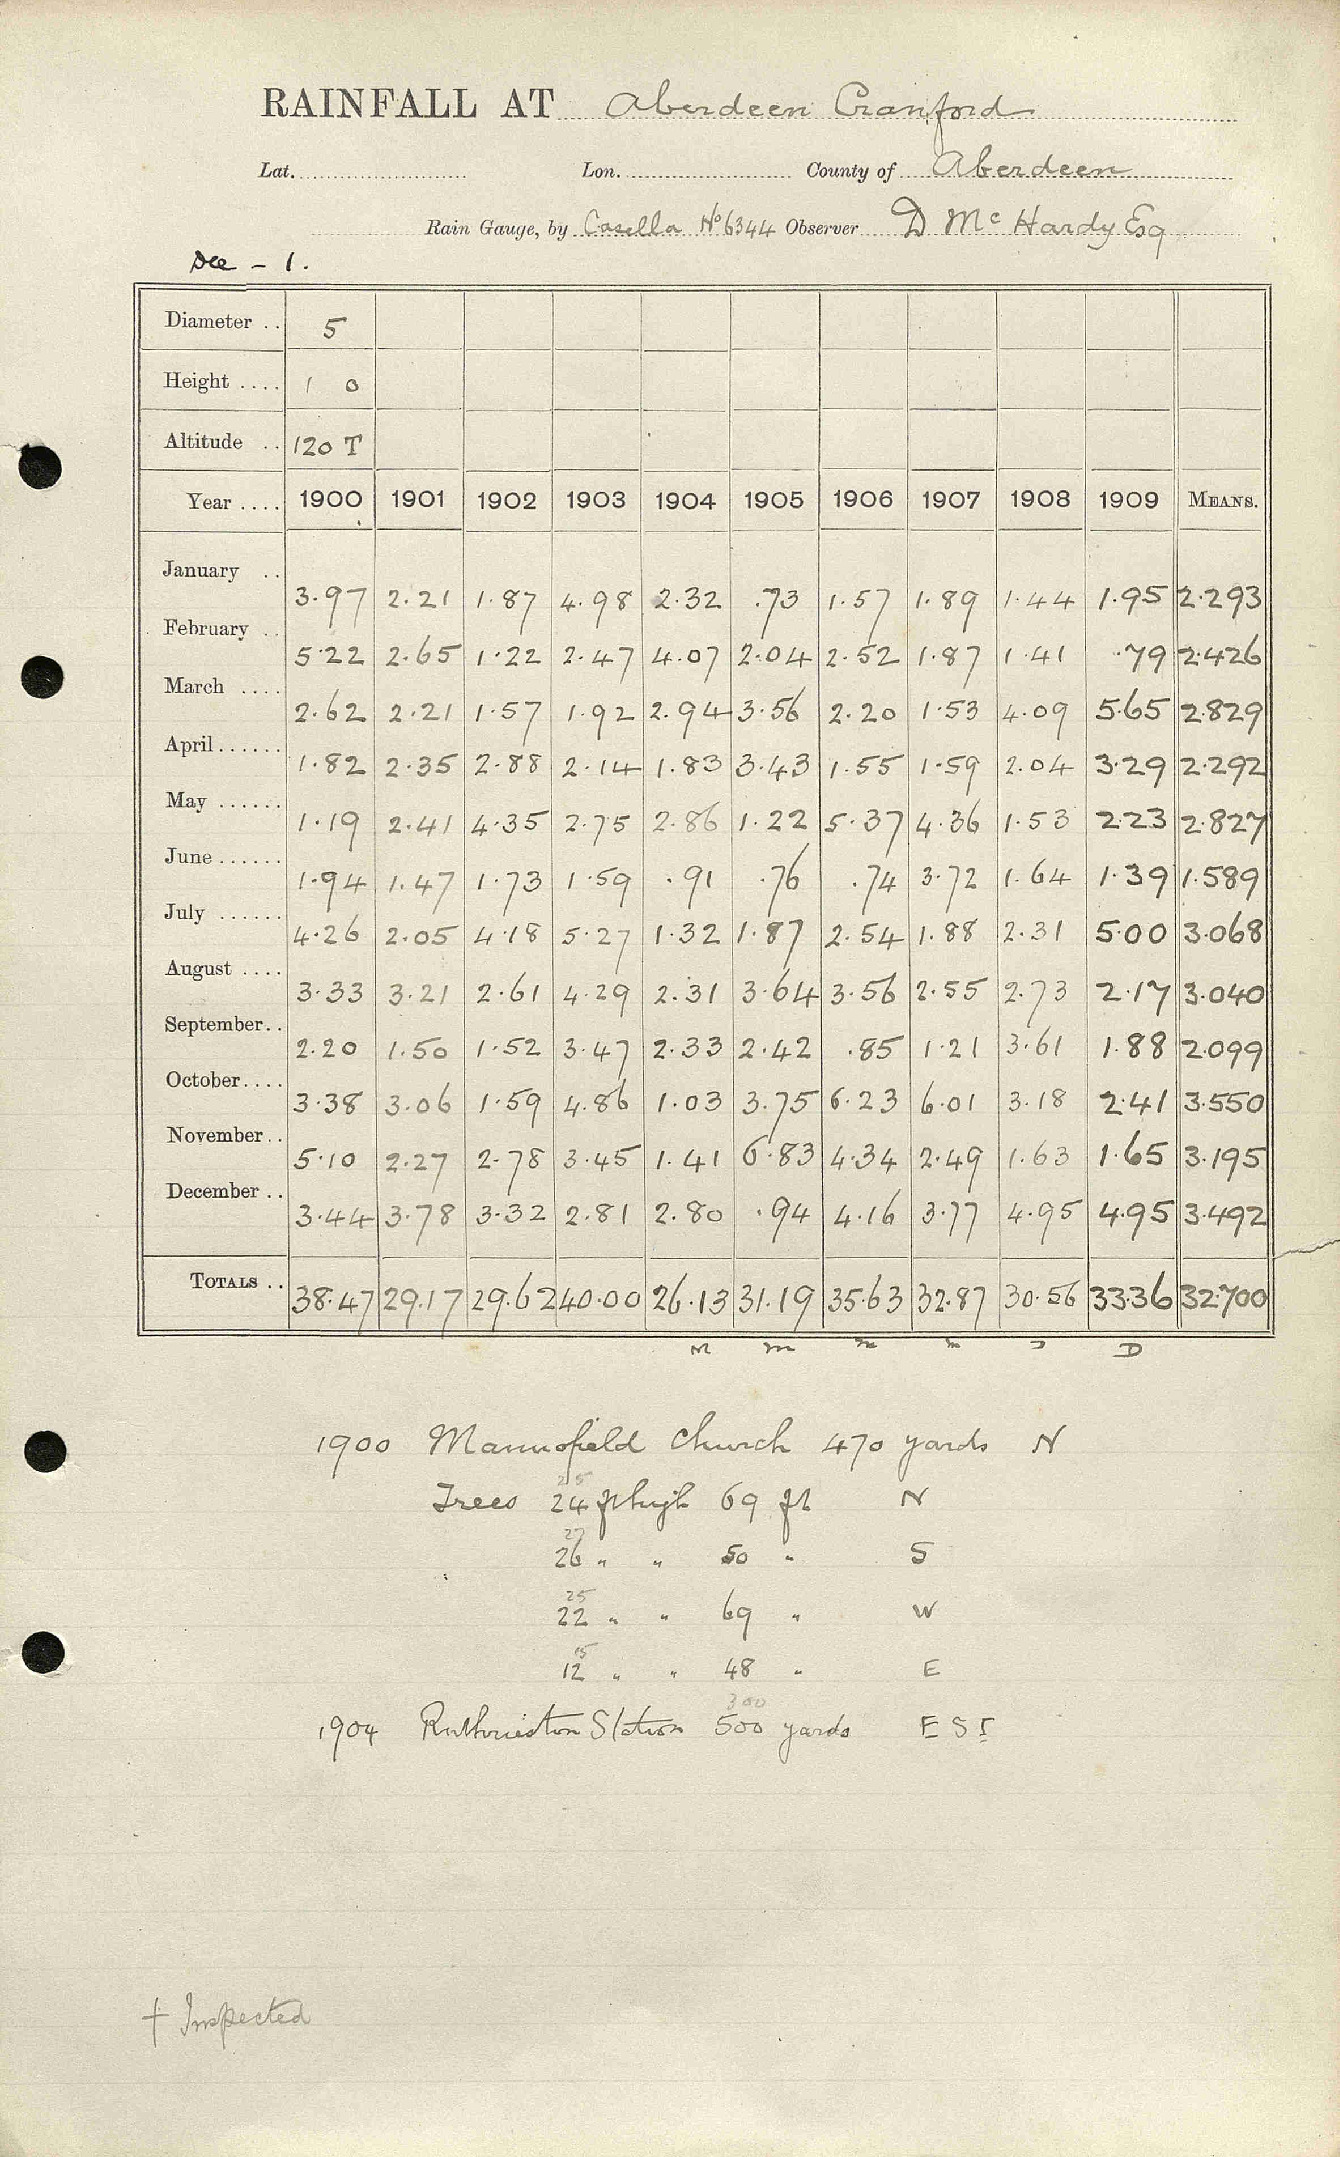 RAINFALL AT Aberdeen Cranford
Lat. Lon. County of Aberdeen
Rain Gauge, by Casella No 6344 Observer D McHardy Esq
Dee - 1.
Diameter .. 5
Height .... 1 0
Altitude .. 120 T
Year .... 1900 1901 1902 1903 1904 1905 1906 1907 1908 1909 MEANS.
January .. 3.97 2.21 1.87 4.98 2.32 .73 1.57 1.89 1.44 1.95 2.293
February .. 5.22 2.65 1.22 2.47 4.07 2.04 2.52 1.87 1.41 .79 2.426
March .... 2.62 2.21 1.57 1.92 2.94 3.56 2.20 1.53 4.09 5.65 2.829
April...... 1.82 2.35 2.88 2.14 1.83 3.43 1.55 1.59 2.04 3.29 2.292
May ...... 1.19 2.41 4.35 2.75 2.86 1.22 5.37 4.36 1.53 2.23 2.827
June ...... 1.94 1.47 1.73 1.59 .91 .76 .74 3.72 1.64 1.39 1.589
July ...... 4.26 2.05 4.18 5.27 1.32 1.87 2.54 1.88 2.31 5.00 3.068
August .... 3.33 3.21 2.61 4.29 2.31 3.64 3.56 2.55 2.73 2.17 3.040
September.. 2.20 1.50 1.52 3.47 2.33 2.42 .85 1.21 3.61 1.88 2.099
October.... 3.38 3.06 1.59 4.86 1.03 3.75 6.23 6.01 3.18 2.41 3.550
November.. 5.10 2.27 2.78 3.45 1.41 6.83 4.34 2.49 1.63 1.65 3.195
December .. 3.44 3.78 3.32 2.81 2.80 .94 4.16 3.77 4.95 4.95 3.492
TOTALS .. 38.47 29.17 29.62 40.00 26.13 31.19 35.63 32.87 30.56 33.36 32.700
M m m m D
1900 Mannofield Church 470 yards N
25
Trees 24 ft high 69 ft N
27
26 " " 50 " S
25
22 " " 69 " W
15
12 " " 48 " E
300
1904 Ruthrieston Station 500 yards E
+ Inspected